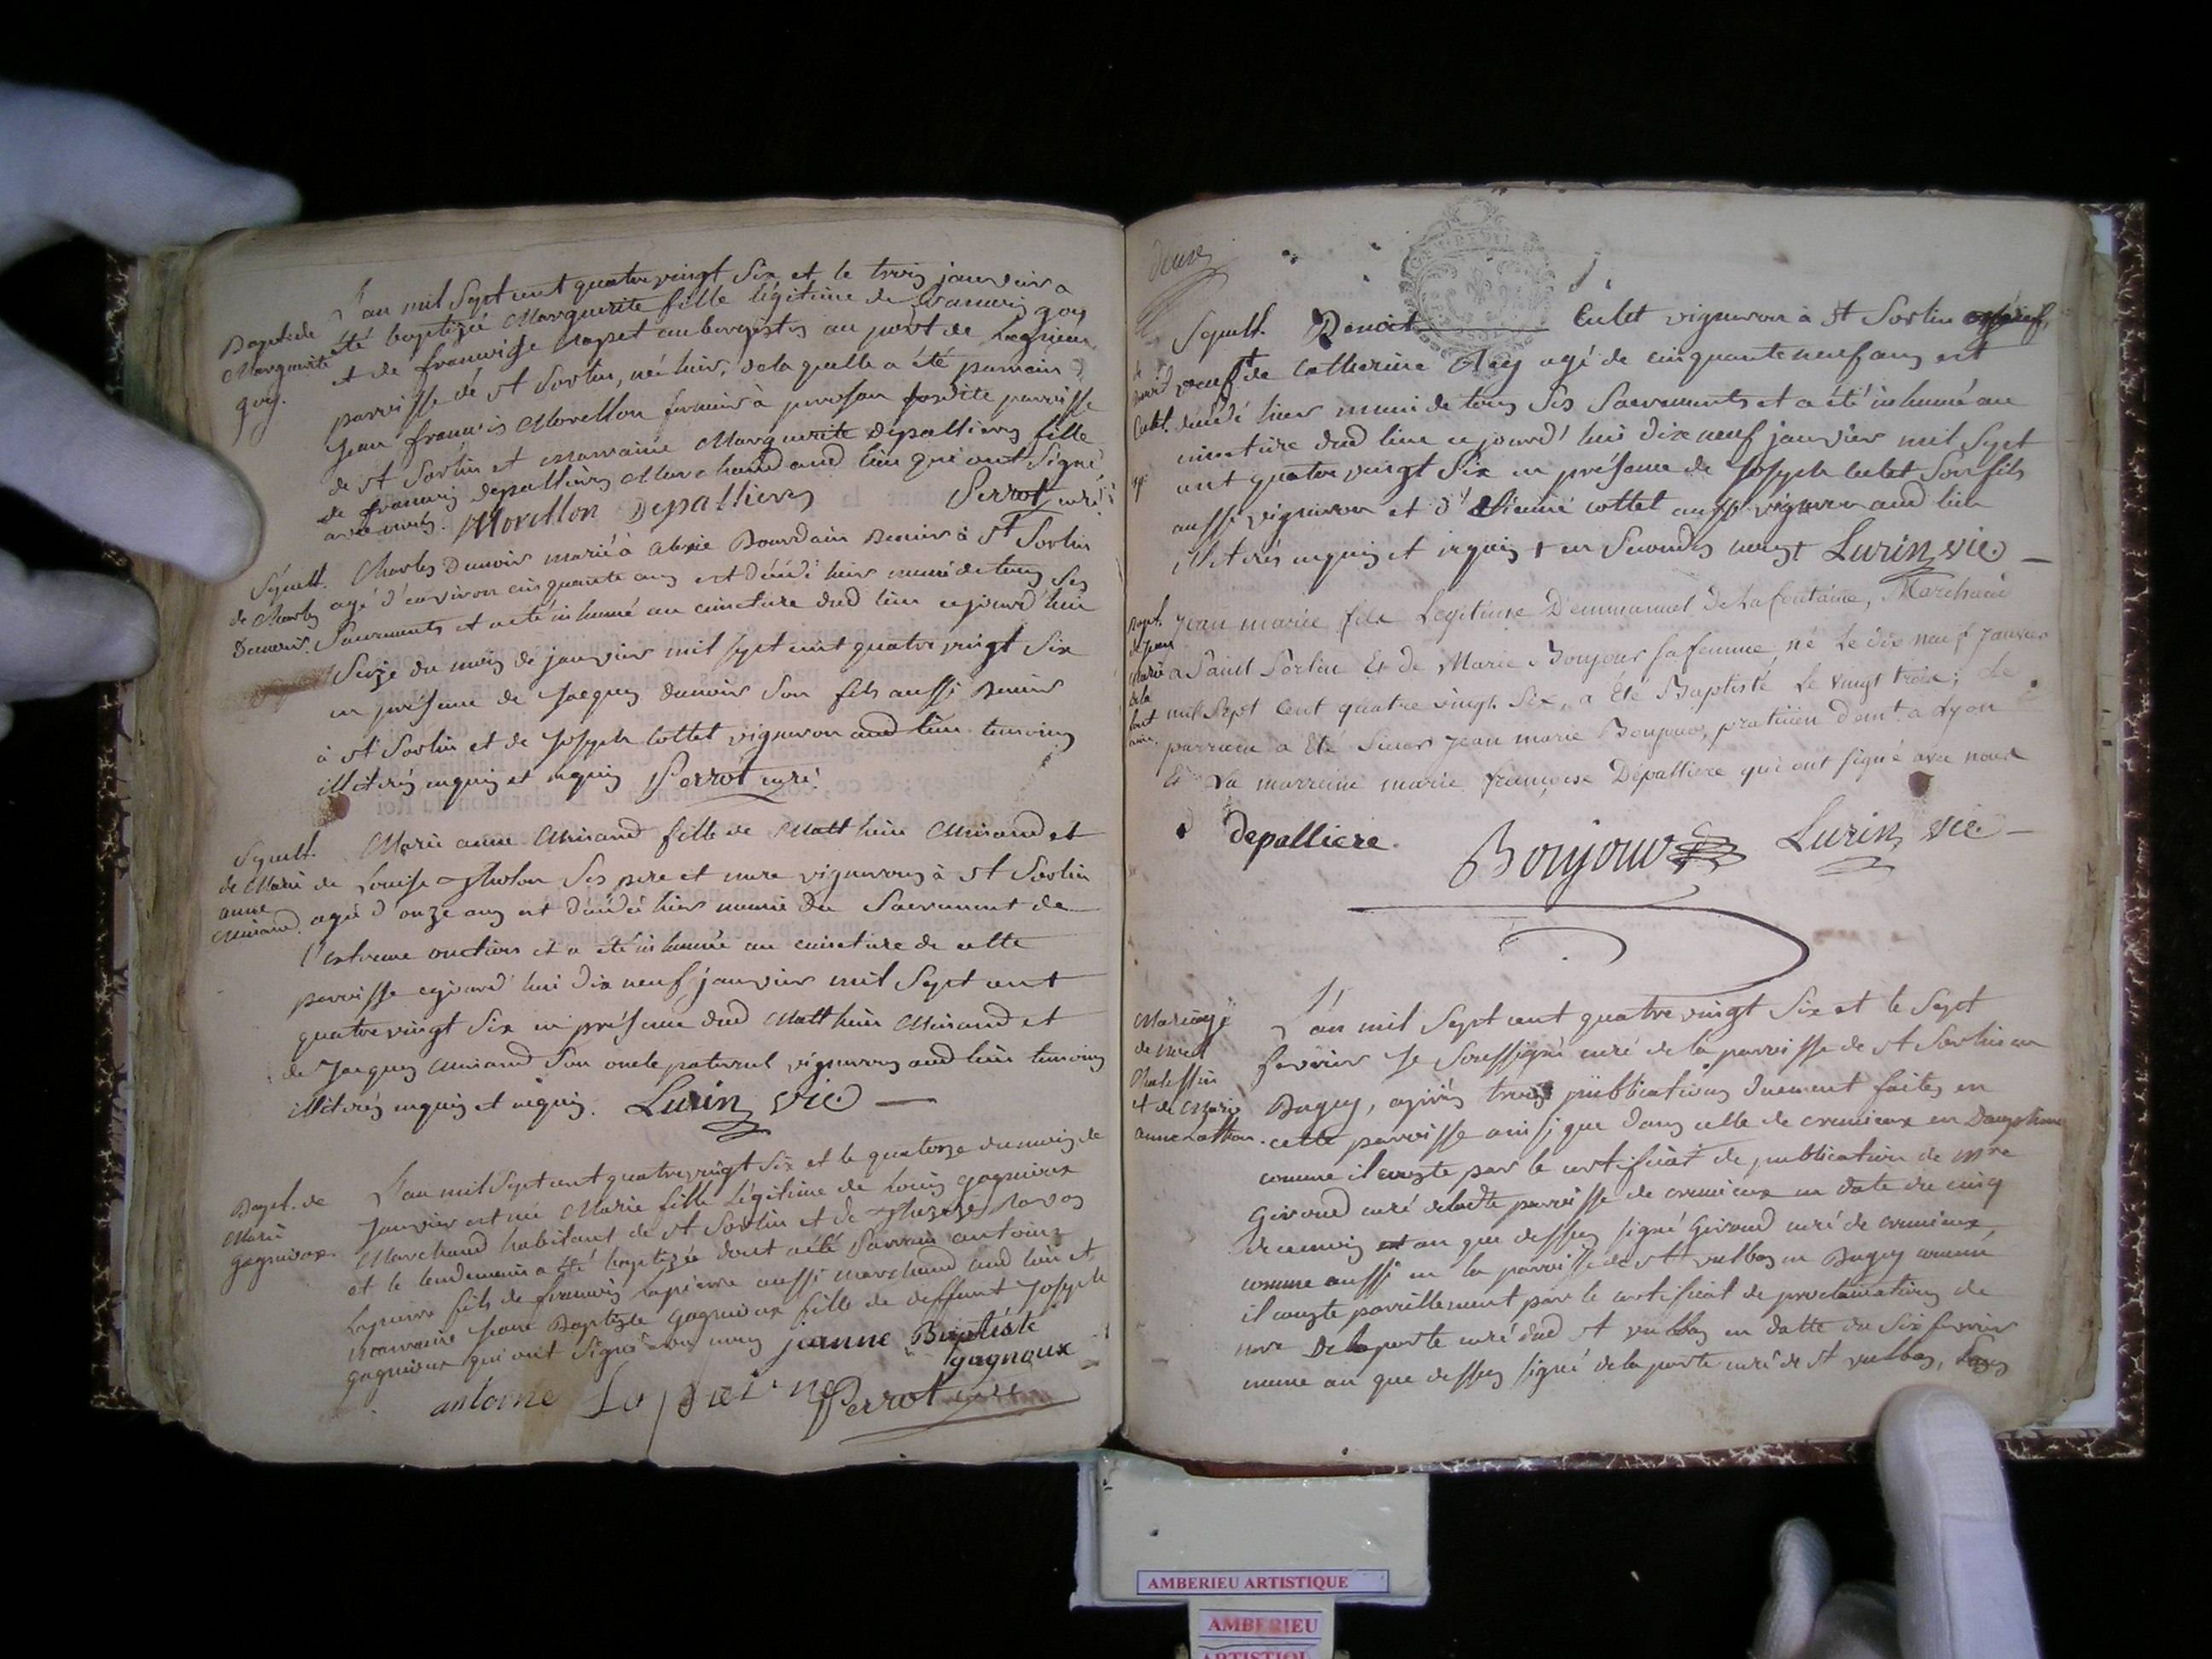 L'an mil Sept cent quatre vingt Six et le trois janvier a
Bapt. de
Marguerite
goy.
été baptizée Marguerite fille légitime de francois goy
et de francoise aubergistes au port de Lagnieu
parroisse de St Sorlin, née hier, de laquelle a été parrain
Jean francois Morellon fermier à dite parroisse
de St Sorlin et marraine Marguerite Depallieres fille
de francois depallieres Marchand aud lieu qui ont Signé
avec nous. Morellon Depallieres Perrot curé
Sépult.
de Charles
Dunoir.
Charles Dunoir marié à Bourdain à St Sorlin
agé d'environ cinquante ans est décédé hier muni de tous Ses
Sacrements et a été inhumé au cimetiere dud lieu cejourd'hui
Seize du mois de janvier mil Sept cent quatre vingt Six
en présence de Jacques dunoir Son fils aussi
à St Sorlin et de Joseph Cottet vigneron aud lieu temoins
illiterés enquis et requis Perrot curé
Sepult.
de Marie
anne
Minand.
Marie anne Minand fille de Matthieu Minand et
de Louise Tholon Ses pere et mere vignerons à St Sorlin
agée d'onze ans est décédée hier munie du Sacrement de
l'extreme onction et a été inhumée au cimetiere de cette
parroisse cejourd'hui dix neuf janvier mil Sept cent
quatre vingt Six en présence dud Matthieu Minand et
de Jacques Minand Son oncle paternel vignerons aud lieu temoins
illiterés enquis et requis. Lurin vic
Bapt. de
Marie
gagnieux.
L'an mil Sept cent quatre vingt Six et le quatorze du mois de
Janvier est née Marie fille Légitime de Louis gagnieux
Marchand habitant de St Sorlin et de Therese
et le lendemain a été baptizée dont a été Parrain antoine
Lapierre fils de francois lapierre aussi marchand aud lieu et
marraine Jeane Baptiste gagnieux fille de deffunt Joseph
gagnieux qui ont Signé avec nous jeanne Baptiste
gagnoux
antoine Lapierre Perrot curé
deux
Sepult.
Benoit Culet vigneron à St Sorlin
veuf de Catherine Rey agé de cinquante neuf ans est
décédé hier muni de tous Ses Sacrements et a été inhumé au
cimetiere dud lieu cejourd'hui dix neuf janvier mil Sept
cent quatre vingt Six en présence de Joseph Culet Son fils
aussi vigneron et d'Etienne cottet aussi vigneron aud lieu
illiterés enquis et requis Lurin vic
Bapt.
de jean
marie
de la
font
aine.
Jean marie fils Legitime D'emmanuel De Lafontaine, Marchand
a Saint Sorlin Et de Marie Bonjour sa femme né Le dix neuf Janvier
mil Sept Cent quatre vingt Six, a été Baptisté Le vingt trois; Le
parrain a Eté Sieur Jean marie Bonjour, praticien demt. a Lyon
Et La marreine marie françoise Depalliere qui ont signé avec nous
depalliere. Bonjour Lurin vic
Mariage
et de Marie
anne Lathon.
L'an mil Sept cent quatre vingt Six et le Sept
fevrier Je Soussigné curé de la parroisse de St Sorlin en
Bugey, après trois publications duement faites en
cette parroisse ainsi que dans celle de cremieux en Dauphine
comme il conste par le certificat de publication de mre
Giroud curé de ladte parroisse de cremieux en date du cinq
de ce mois et an que dessus signé Giroud curé de cremieux,
comme aussi en la parroisse de St vulbas en Bugey comme
il conste pareillement par le certificat de proclamations de
mre Delaporte curé dud St vulbas en datte du Six fevrier
meme an que dessus signé delaporte curé de St vulbas,
AMBERIEU ARTISTIQUE
AMBERIEU
ARTISTIQUE